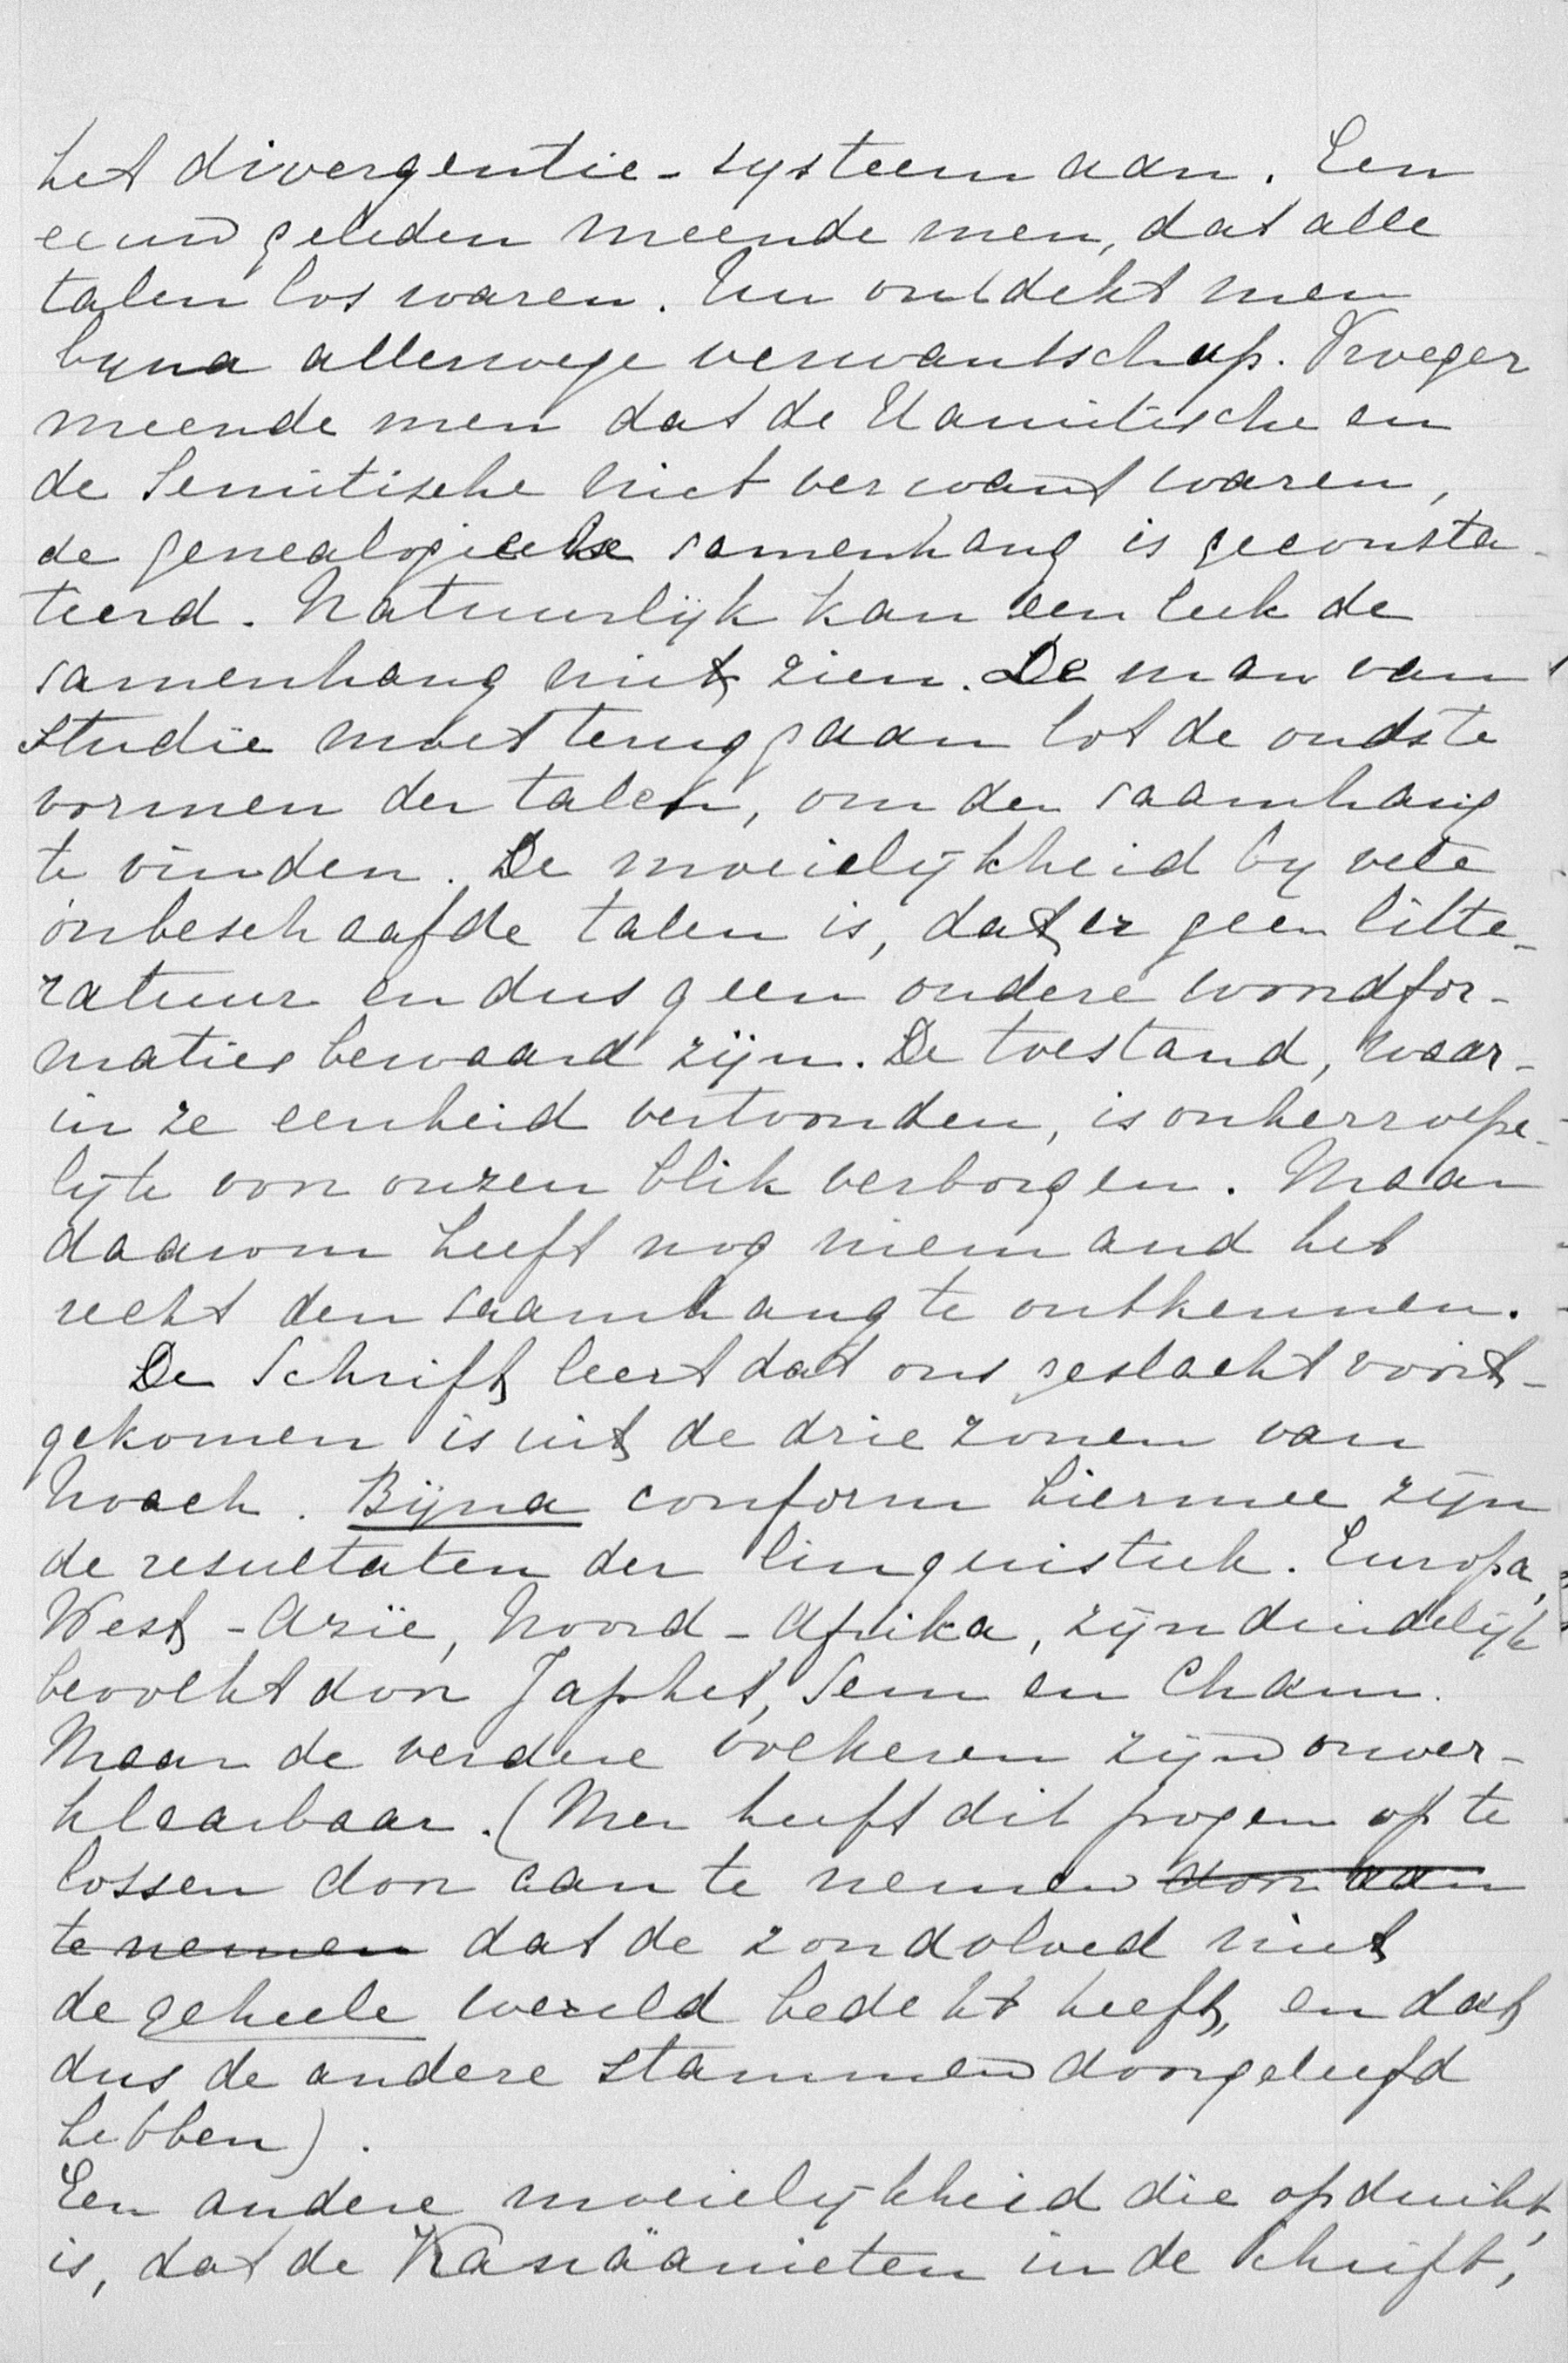 het divergentie-systeem aan. Een
eeuw geleden meende men, dat alle
talen los waren. Nu ontdekt men
byna allerwege verwantschap. Vroeger
meende men dat de Hamitische en
de Semitische niet verwant waren,
de genealogische samenhang is geconsta-
teerd. Natuurlijk kan een leek de
samenhang niet zien. De man van
studie moet teruggaan tot de oudste
vormen der talen, om den saamhang
te vinden. De moeielijkheid by vele
onbeschaafde talen is, dat er geen litte-
ratuur en dus geen oudere woordfor-
maties bewaard zijn. De toestand, waar-
in ze eenheid vertoonden, is onherroepe-
lyk voor onzen blik verborgen. Maar
daarom heeft nog niemand het
recht den saamhang te ontkennen.
De Schrift leert dat ons geslacht voort-
gekomen is uit de drie zonen van
Noach. Bijna conform hiermee zijn
de resultaten der linguistiek. Europa,
West-Azië, Noord-Afrika, zijn duidelijk
bevolkt door Japhet, Sem en Cham.
Maar de verdere volkeren zijn onver-
klaarbaar. (Men heeft dit pogen op te
lossen door aan te nemen door aan
te nemen dat de zondvloed niet
de geheele wereld bedekt heeft, en dat
dus de andere stammen doorgeleefd
hebben).
Een andere moeielijkheid die opduikt,
is, dat de Kanäanieten in de Schrift,